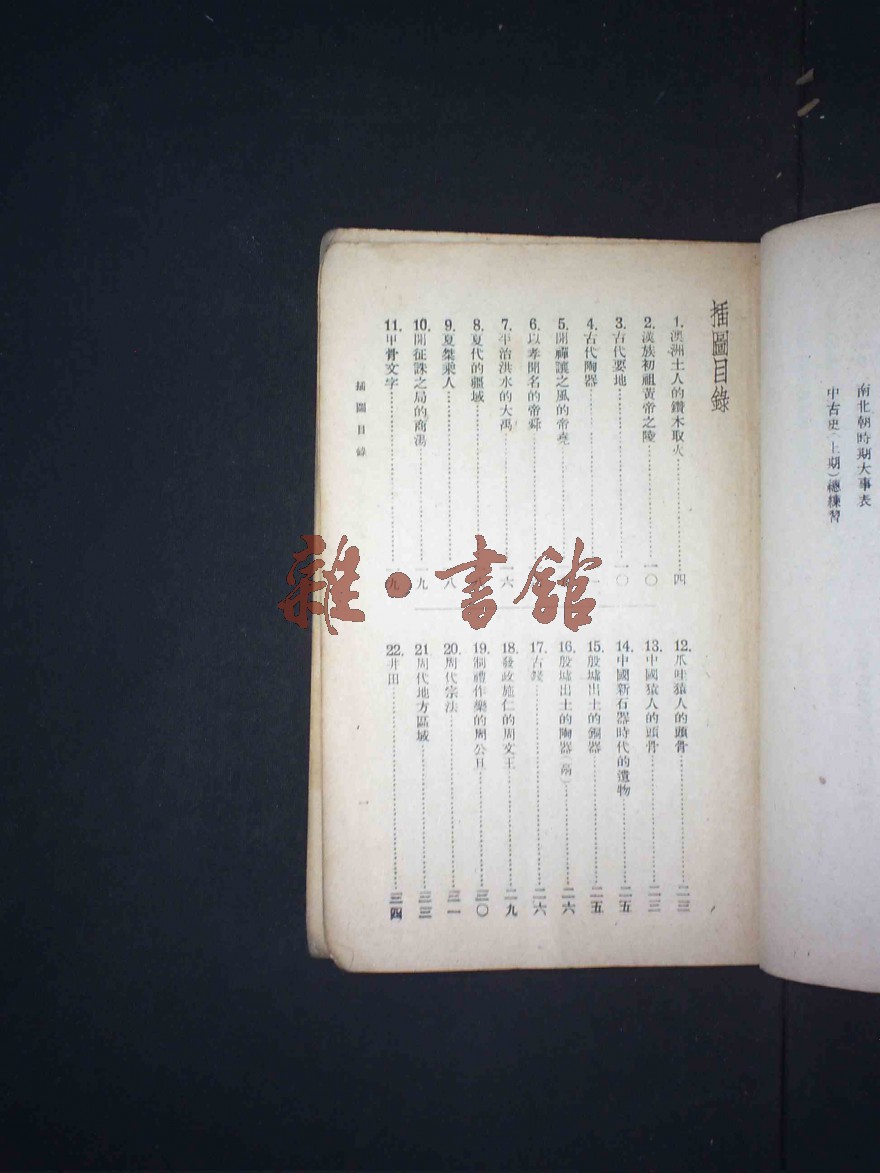 南北朝時期大事表
中古史(上期)總練習
插圖目錄
1. 澳洲土人的鑽木取火 四
2. 漢族初祖黃帝之陵 一〇
3. 古代要地 一〇
4. 古代陶器
5. 開禪讓之風的帝堯
6. 以孝聞名的帝舜
7. 平治洪水的大禹 一六
8. 夏代的疆域
9. 夏桀乘人 八
10. 開征誅之局的商湯 一九
11. 甲骨文字 一九
12. 爪哇猿人的頭骨 二三
13. 中國猿人的頭骨 二三
14. 中國新石器時代的遺物 二五
15. 殷墟出土的銅器 二五
16. 殷墟出土的陶器(鬲) 二六
17. 古錢 二六
18. 發政施仁的周文王 二九
19. 制禮作樂的周公旦 三〇
20. 周代宗法 三一
21. 周代地方區域 三三
22. 井田 三四
插圖目錄
一
雜·書館